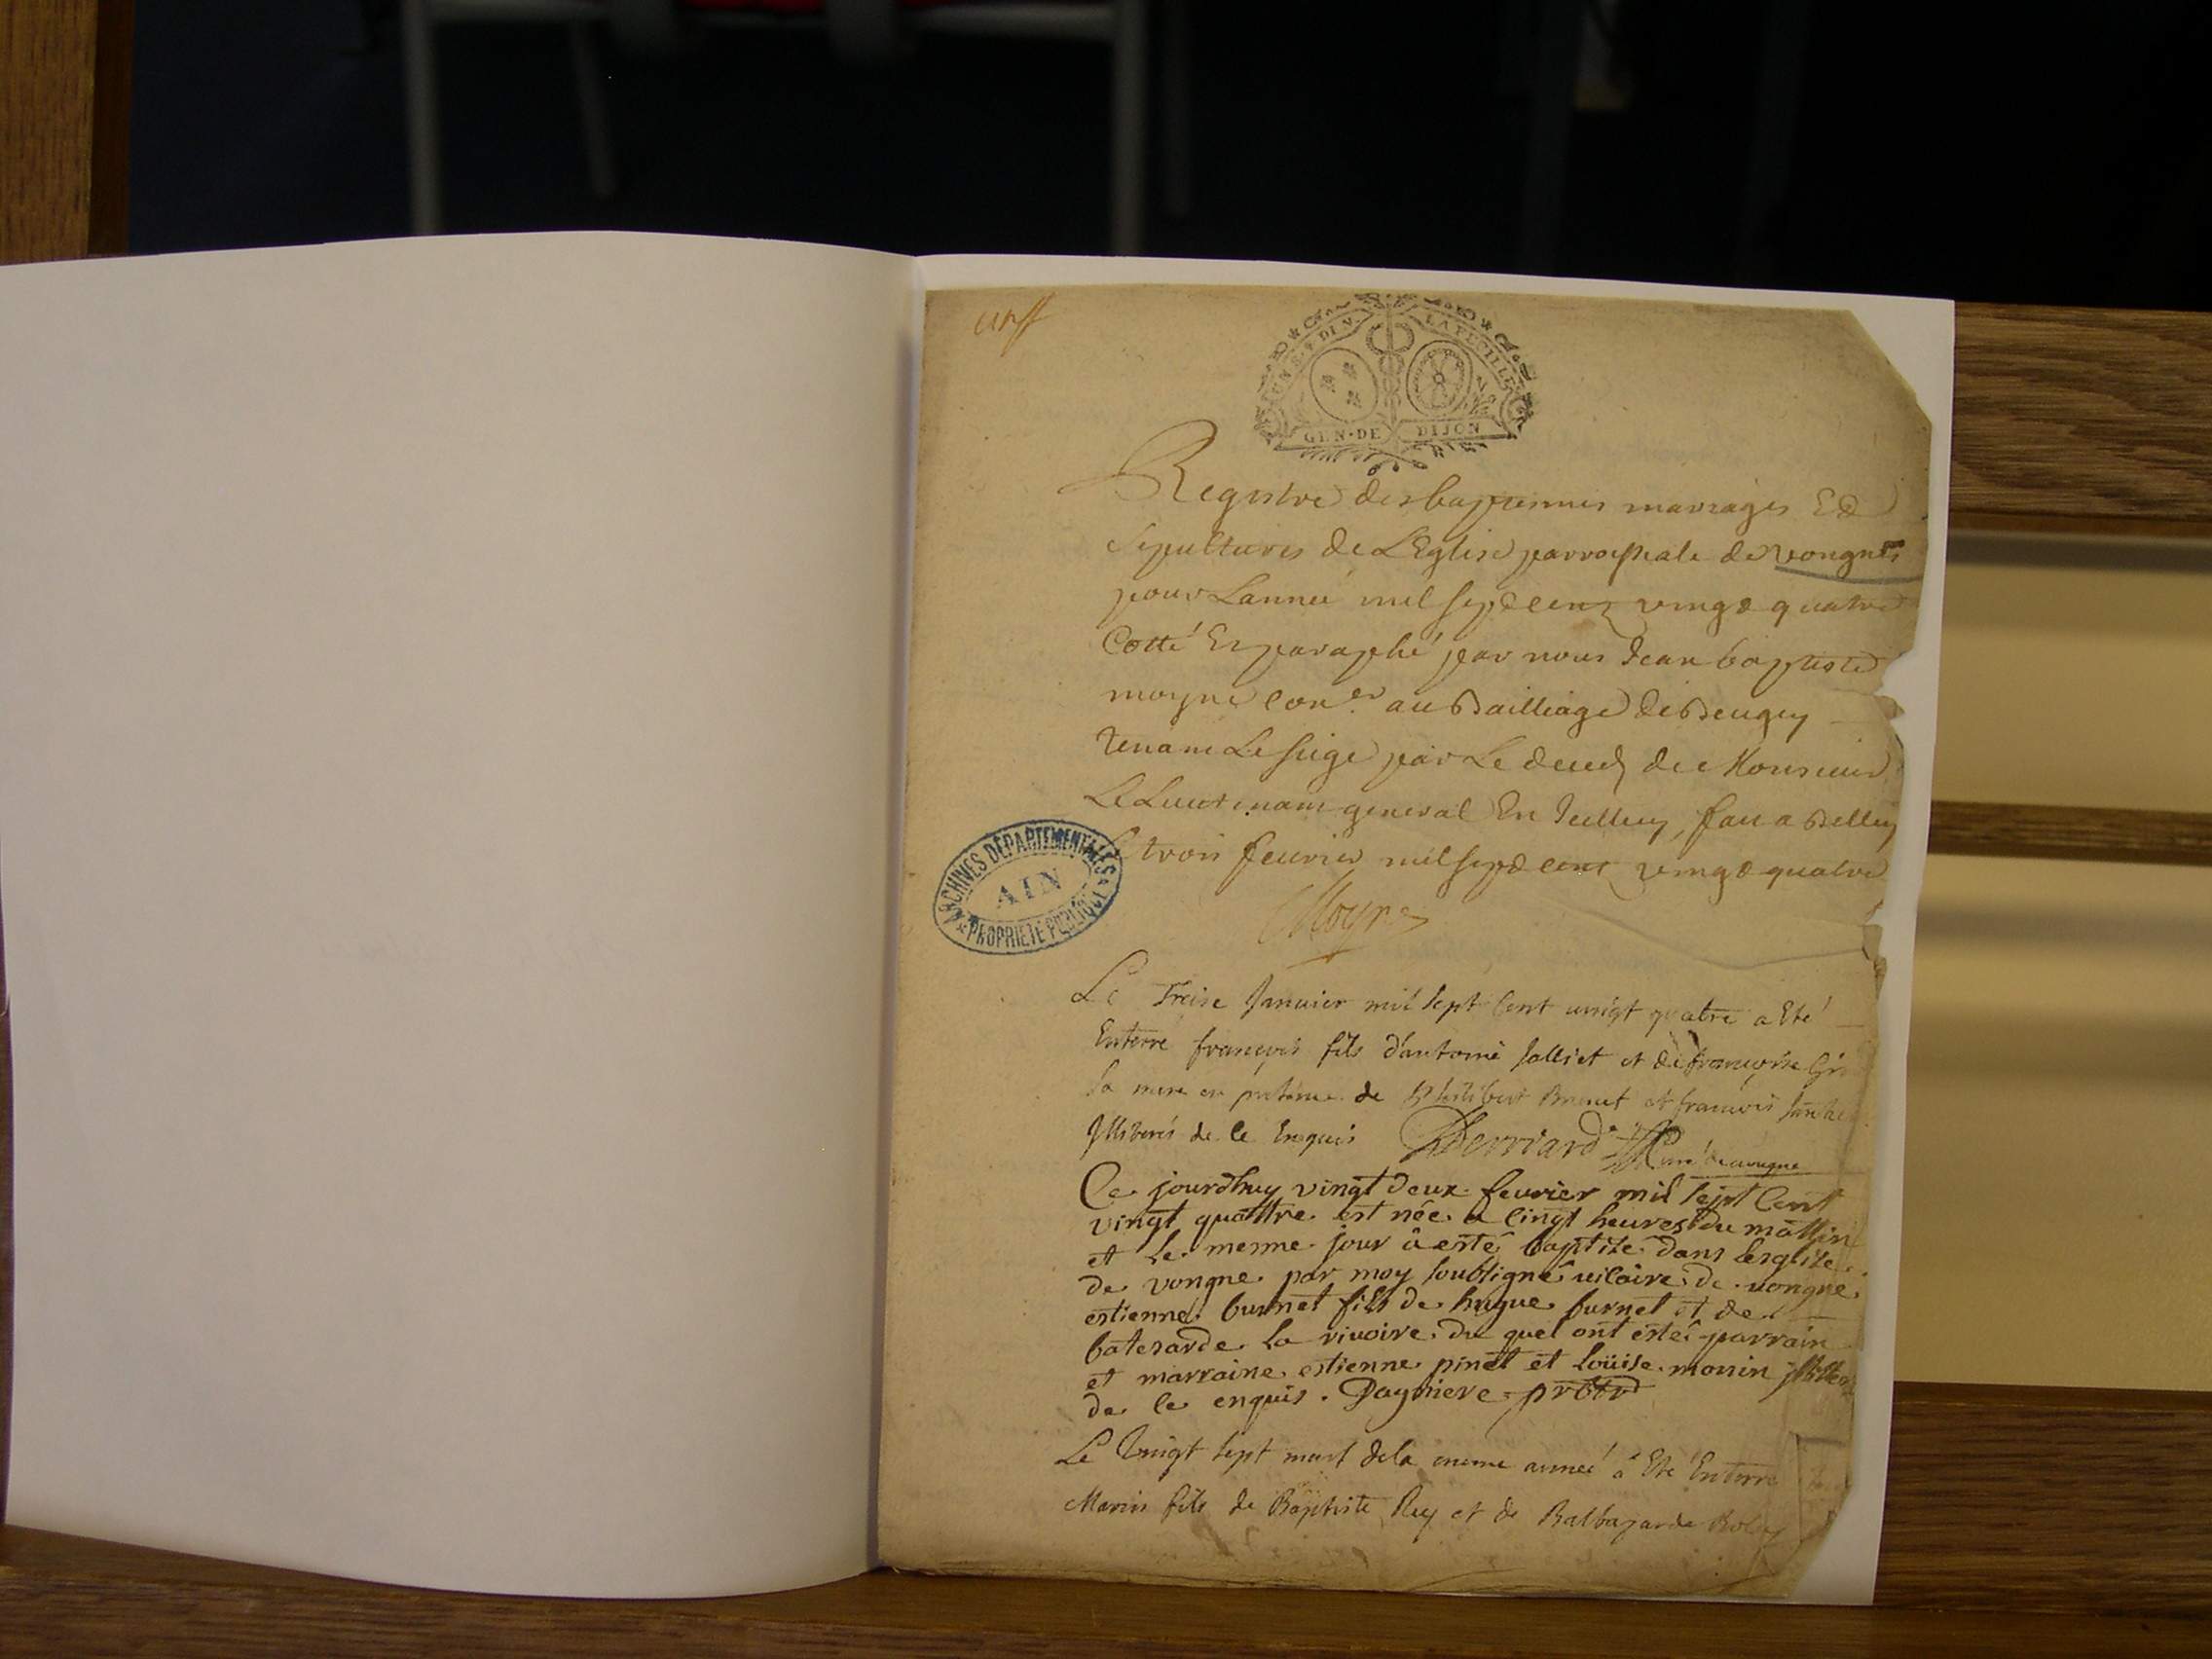 UN S. 4 DEN. LA FEUILLE
GEN. DE DIJON
Registre des baptesmes mariages Et
sepultures de LEglise parrochiale de vongnes
pour Lannee mil sept cent vingt quatre
Cotté Et paraphé par nous Jean baptiste
moyne con.er au Bailliage de Beugey
tenant Le siege par Le deced de Monsieur
Le Lieutenant general En Icelluy, fait a Belley
trois feurier mil sept cent vingt quatre
Moyne
ARCHIVES DÉPARTEMENTALES
AIN
PROPRIÉTÉ PUBLIQUE
Le Treise Januier mil sept Cent uingt quatre a Eté
Enterré françois fils d'antoine Jalliet et de françoise
sa mere en presence de Philibert Brunet et francois
Illiterés de ce Enquis Derriard Curé de uongne
Ce jourdhuy vingt deux feurier mil sept Cent
vingt quattre est née a cinqt heures du mattin
et le mesme jour à esté baptizé dans lesglize
de vongne par moy soubsigné uicaire de uongne
estienne burnet fils de hugue burnet et de
batesarde la riuoire du quel ont estés parrain
et marraine estienne pinet et loüise monin
de ce enquis. Pagniere prbtr
Le Vingt sept mars dela meme année à Eté Enterré
Marin fils de Baptiste Rey et de Baltazarde